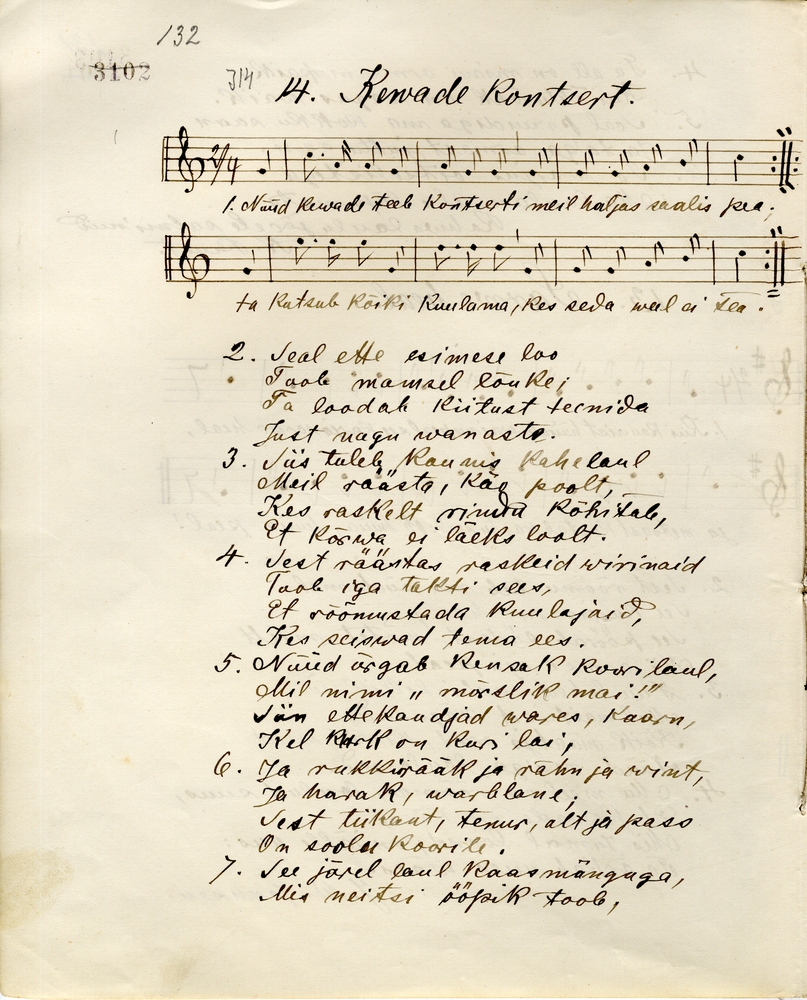 132
3102
314
14. Kewade kontsert.
2/4
1. Nüüd kewade teeb kontserti meil haljas saalis pea;
ta kutsub kõiki kuulama, kes seda weel ei tea.
2. Seal ette esimese loo
Toob mamsel lõuke;
Ta loodab kiitust teenida
Just nagu wanaste.
3. Siis tuleb kaunis kahelaul
Meil räästa, käo poolt,
Kes raskelt rinda kõhitab,
Et kõrwa ei läeks loolt.
4. Sest räästas raskeid wirinaid
Toob iga takti sees,
Et rõõmustada kuulajaid,
Kes seiswad tema ees.
5. Nüüd ärgab kensak koorilaul,
Mil nimi „ mõrslik mai!"
Siin ettekandjad wares, kaarn,
Kel kurk on kuri lai,
6. Ja rukkirääk ja rähn ja wint,
Ja harak, warblane;
Sest tiikant, tenur, alt ja pass
On soolu koorile.
7. See järel laul kaasmänguga,
Mis neitsi ööpik toob,